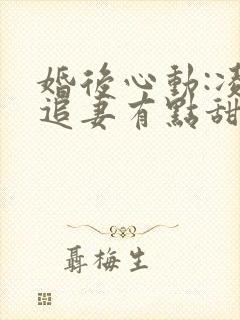 婚後心動:凌
追妻有點甜
聶梅生